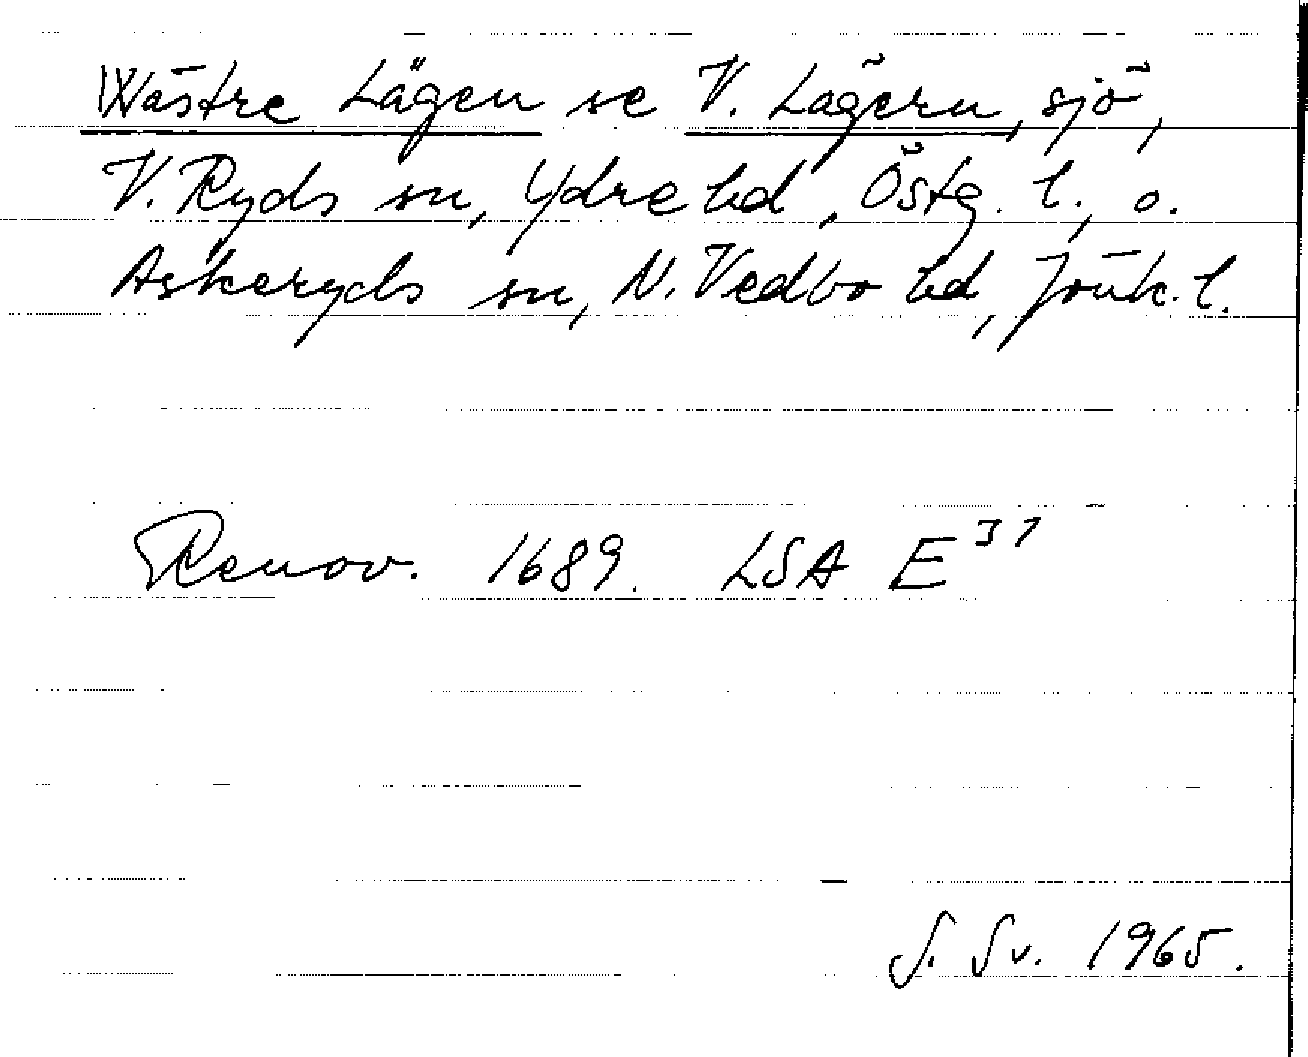 Wästre Lägen se V. Lägern, sjö,
V. Ryds sn, Ydre hd, Östg. l., o.
Askeryds sn, N. Vedbo hd, Jönk. l.
Renov. 1689. LSA E³⁷
S. Sv. 1965.